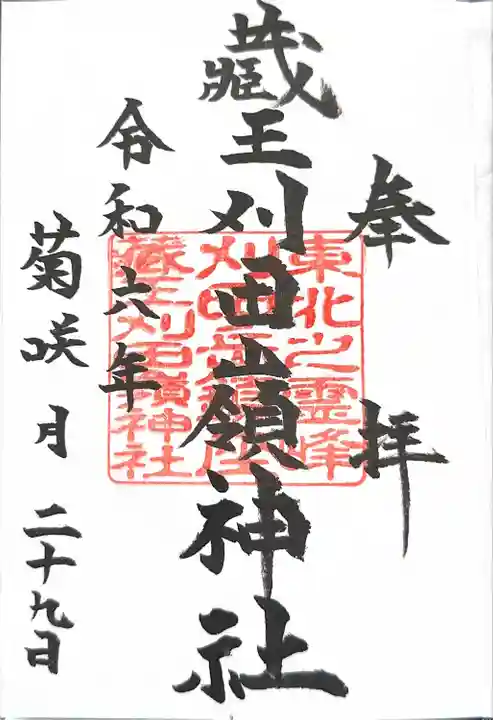 奉拝
蔵王刈田嶺神社
令和六年
菊咲月二十九日
東北之霊峰
蔵王刈田嶺神社